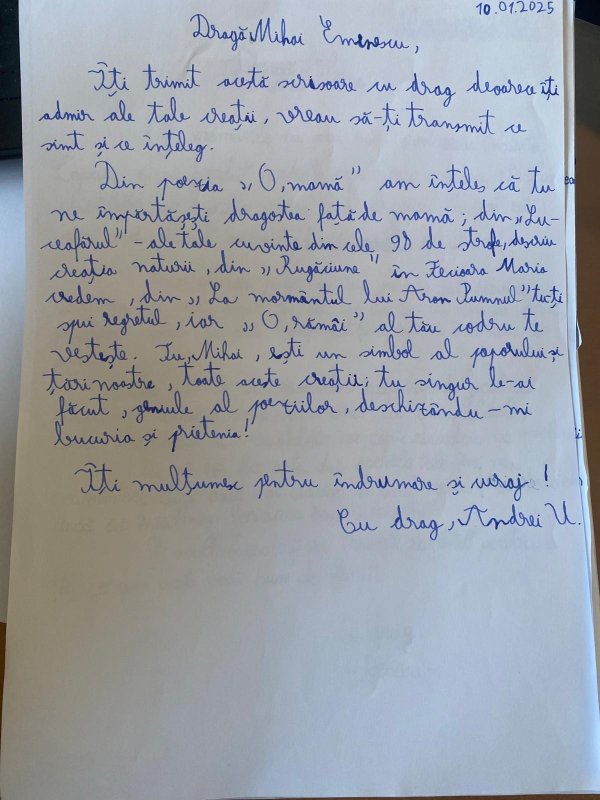 10.01.2025
Dragă Mihai Eminescu,
Îți trimit acestă scrisoare cu drag deoarece îți
admir ale tale creații, vreau să-ți transmit ce
simt și ce înțeleg.
Din poezia „O, mamă” am înteles că tu
ne împărtășești dragostea față de mamă; din „Lu-
ceafărul” - ale tale cuvinte din cele 98 de strofe, descriu
creația naturii, din „Rugăciune” în Fecioara Maria
credem, din „La mormântul lui Aron Pumnul” tu-ți
spui regretul, iar „O, rămâi” al tău codru te
vestește. Tu, Mihai, ești un simbol al poporului și
țări noastre, toate aceste creații; tu singur le-ai
făcut, geniule al poeziilor, deschizându-mi
bucuria și prietenia!
Îți mulțumesc pentru îndrumare și curaj!
Cu drag, Andrei U.